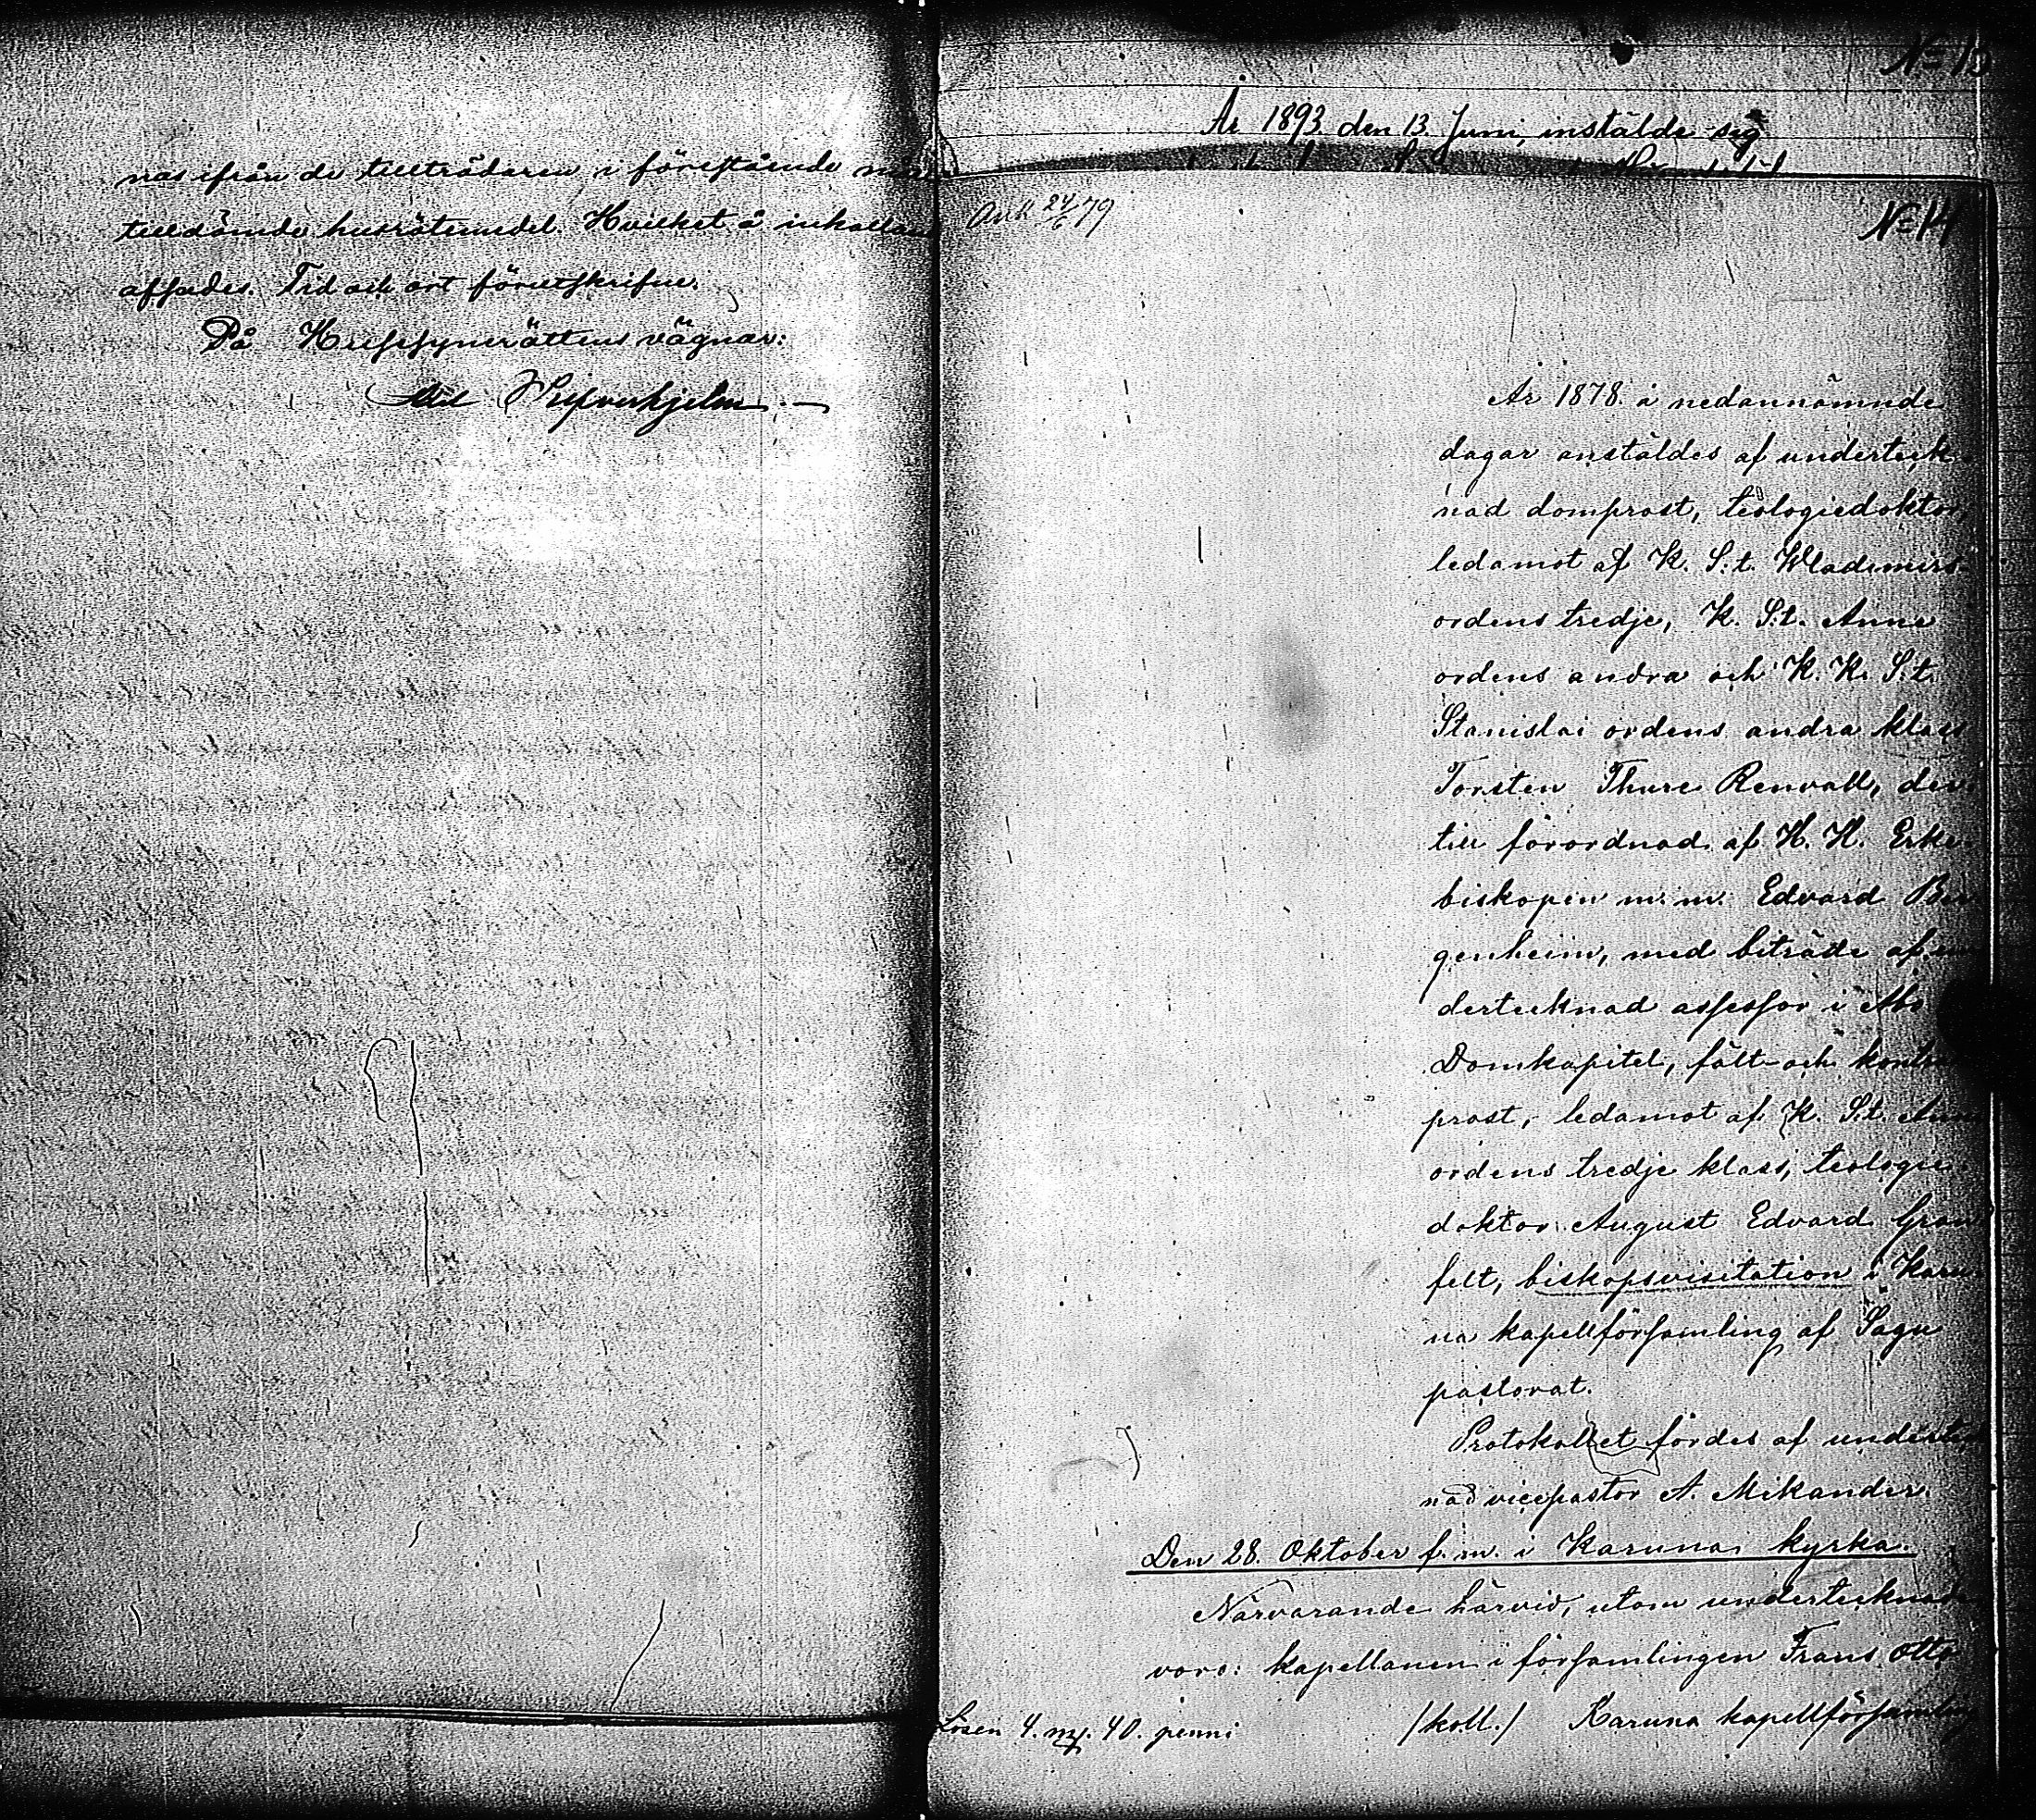 nas ifrån de tillträdaren i förestående
tilldömde husrötemedel. Hvilket å inkallan
afsades. Tid och ort förutskrifne.
På Husesynerättens vägnar:
№ 10
År 1893 den 13. Juni, instälde sig
Ank 24/6 79
№ 14
År 1878 å nedannämnde
dagar anstäldes af underteck-
nad domprost, teologiedoktor,
ledamot af K. S:t. Wladimirs-
ordens tredje, K. S:t. Anne
ordens andra och K. K. S:t.
Stanislai ordens andra klass
Torsten Thure Renvall, der-
till förordnad af H. H. Erke-
biskopen m. m. Edvard Ber
genheim, med biträde af un
dertecknad assessor i Åbo
Domkapitel, fält- och kont
prost, ledamot af K. S:t. Anne
ordens tredje klass, teologie-
doktor August Edvard Gran
felt, biskopsvisitation i Karu-
na kapellförsamling af Sagu
pastorat.
Protokollet fördes af underteck
nad vicepastor A. Mikander.
Den 28. Oktober f. m. i Karuna kyrka.
Närvarande härvid, utom undertecknade
voro: kapellanen i församlingen Frans Otto
Lösen 4. mk. 40. penni /koll./ Karuna kapellförsamling